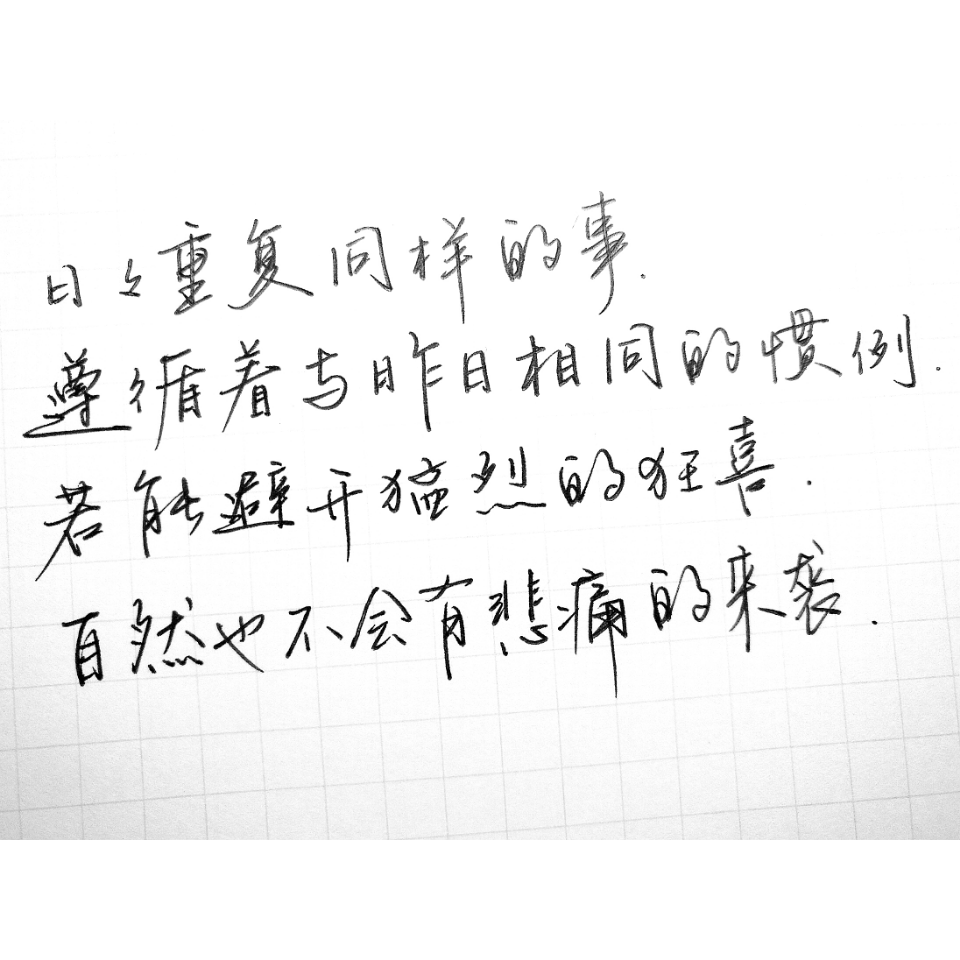 日々重复同样的事.
遵循着与昨日相同的惯例.
若能避开猛烈的狂喜.
自然也不会有悲痛的来袭.